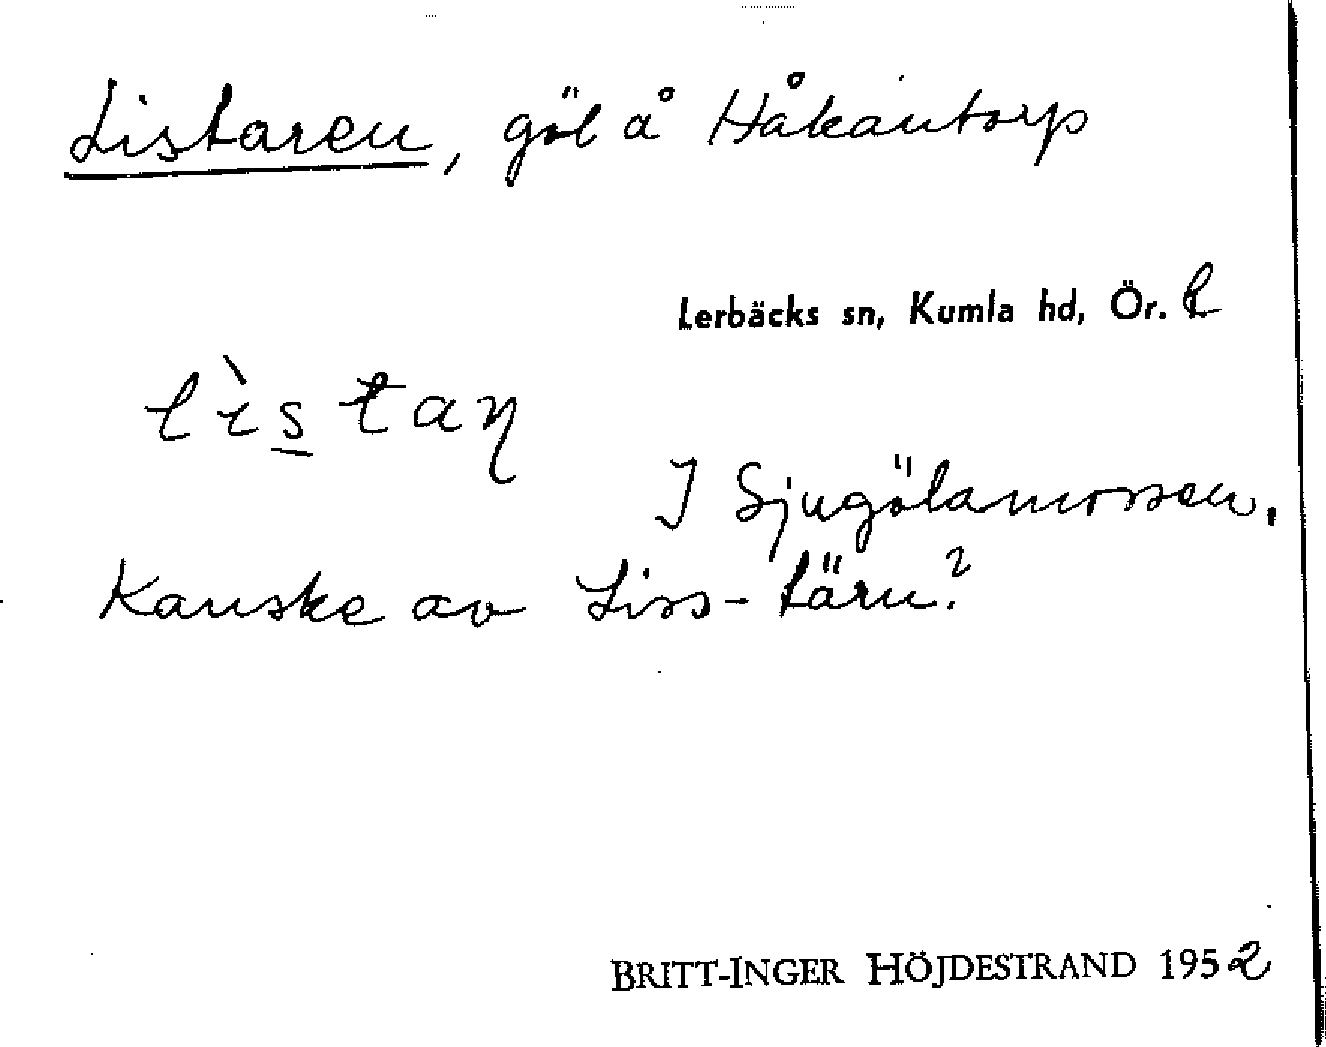 Listaren, göl å Håkantorp
Lerbäcks sn, Kumla hd, Ör. l
lìs̲taɳ
I Sjugölamossen.
Kanske av Liss-tärn?
BRITT-INGER HÖJDESTRAND 1952